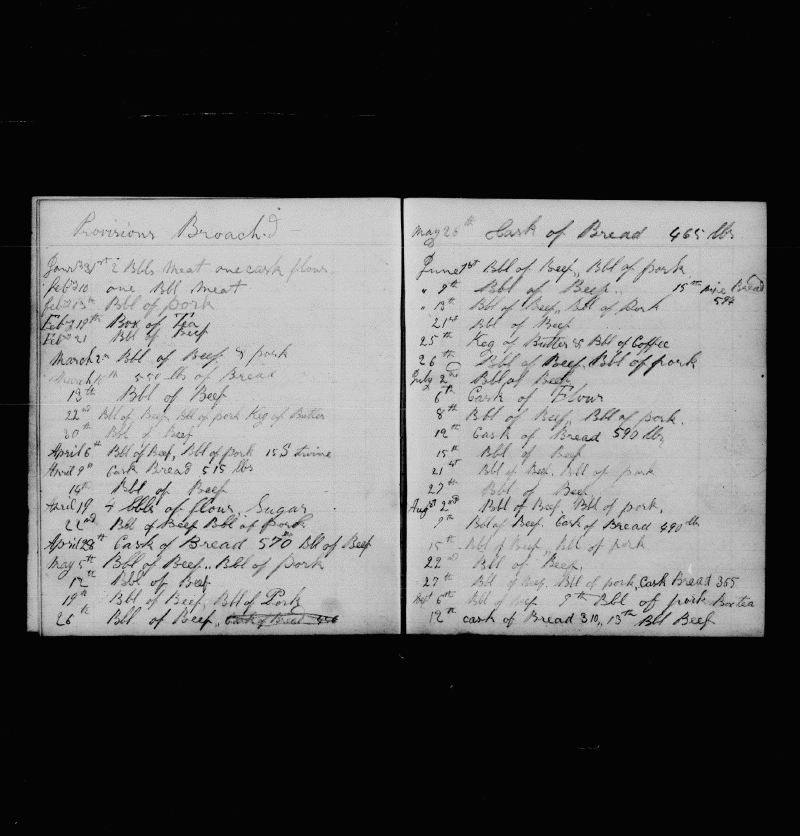 Provisions Broach.d
Jany 31st 2 Bbls Meat one cask flour
Feby 10 one Bbl meat
Feby 13th Bbl of pork
Feby 18th Box of Tea
Feby 21 Bbl of Beef
March 2n Bbl of Beef & pork
March 10th 550 lbs of Bread
13th Bbl of Beef
22nd Bbl of Beef Bbl of pork Keg of Butter
30th Bbl of Beef
April 6th Bbl of Beef, Bbl of pork 15 S
April 9th Cask Bread 515 lbs
14th Bbl of Beef
April 19 4 bbls of flour, Sugar
22nd Bbl of Beef Bbl of pork
April 28th Cask of Bread 570 Bbl of Beef
May 5th Bbl of Beef,, Bbl of pork
12th Bbl of Beef
19th Bbl of Beef, Bbl of Pork
26th Bbl of Beef,, Cask of Bread
May 26th Cask of Bread 465 lbs
June 1st Bbl of Beef,, Bbl of pork
" 9th Bbl of Beef,, 15th pipe Bread
594
" 13th Bbl of Beef,, Bbl of Pork
21st Bbl of Beef
25th Keg of Butter & Bbl of Coffee
26th Bbl of Beef, Bbl of pork
July 2nd Bbl of Beef
6th Cask of Flour
8th Bbl of Beef,, Bbl of pork.
12th Cask of Bread 590 lbs
15th Bbl of Beef
21st Bbl of Beef. Bbl of pork
27th Bbl of Beef
Augst 2nd Bbl of Beef, Bbl of pork,
9th Bbl of Beef. Cask of Bread 490 lb
15th Bbl of Beef,, Bbl of pork
22nd Bbl of Beef.
27th Bbl of Beef, Bbl of pork, Cask Bread 365
Sept 6th Bbl of Beef 8th Bbl of pork Box tea
12th cask of Bread 310,, 13th Bbl Beef